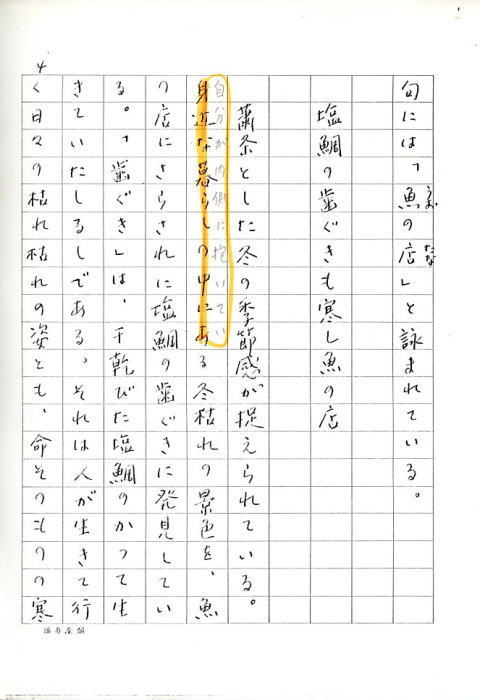 句には「魚の店」と詠まれている。
うお
たな
塩鯛の歯ぐきも寒し魚の店
蕭条とした冬の季節感が捉えられている。
自分が内側に抱いてい
身近な暮らしの中にある冬枯れの景色を、魚
の店にさらされた塩鯛の歯ぐきに発見してい
る。「歯ぐき」は、干乾びた塩鯛のかつて生
きていたしるしである。それは人が生きて行
く日々の枯れ枯れの姿とも、命そのものの寒
4